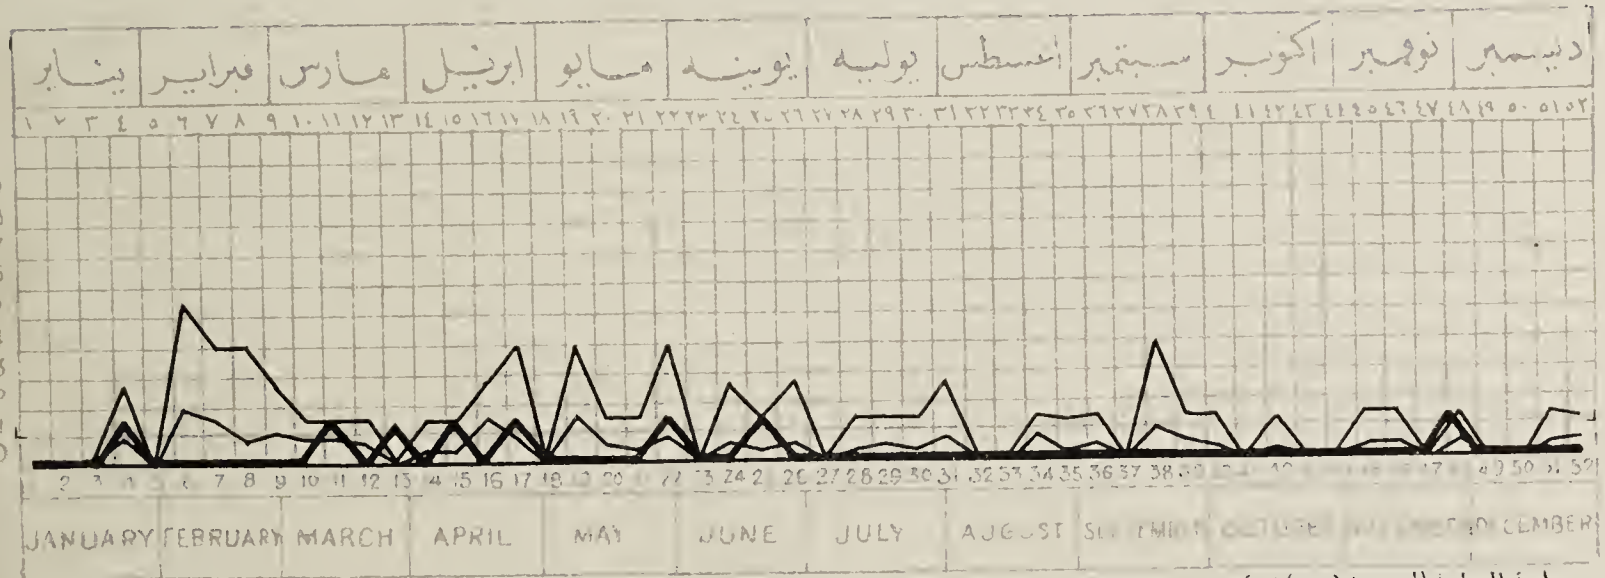 يناير فبراير مارس ابريل مايو يونيه يوليه اغسطس سبتمبر اكتوبر نوفمبر ديسمبر
١ ٢ ٣ ٤ ٥ ٦ ٧ ٨ ٩ ١٠ ١١ ١٢ ١٣ ١٤ ١٥ ١٦ ١٧ ١٨ ١٩ ٢٠ ٢١ ٢٢ ٢٣ ٢٤ ٢٥ ٢٦ ٢٧ ٢٨ ٢٩ ٣٠ ٣١ ٣٢ ٣٣ ٣٤ ٣٥ ٣٦ ٣٧ ٣٨ ٣٩ ٤ ٤١ ٤٢ ٤٣ ٤٤ ٤٥ ٤٦ ٤٧ ٤٨ ٤٩ ٥٠ ٥١ ٥٢
2 3 7 8 9 10 11 12 13 14 15 16 17 18 20 24 26 27 28 29 30 31 32 33 34 35 36 37 38 49 50 51 52
JANUARY FEBRUARY MARCH APRIL MAY JUNE JULY AUGUST SEPTEMBER OCTOBER DECEMBER